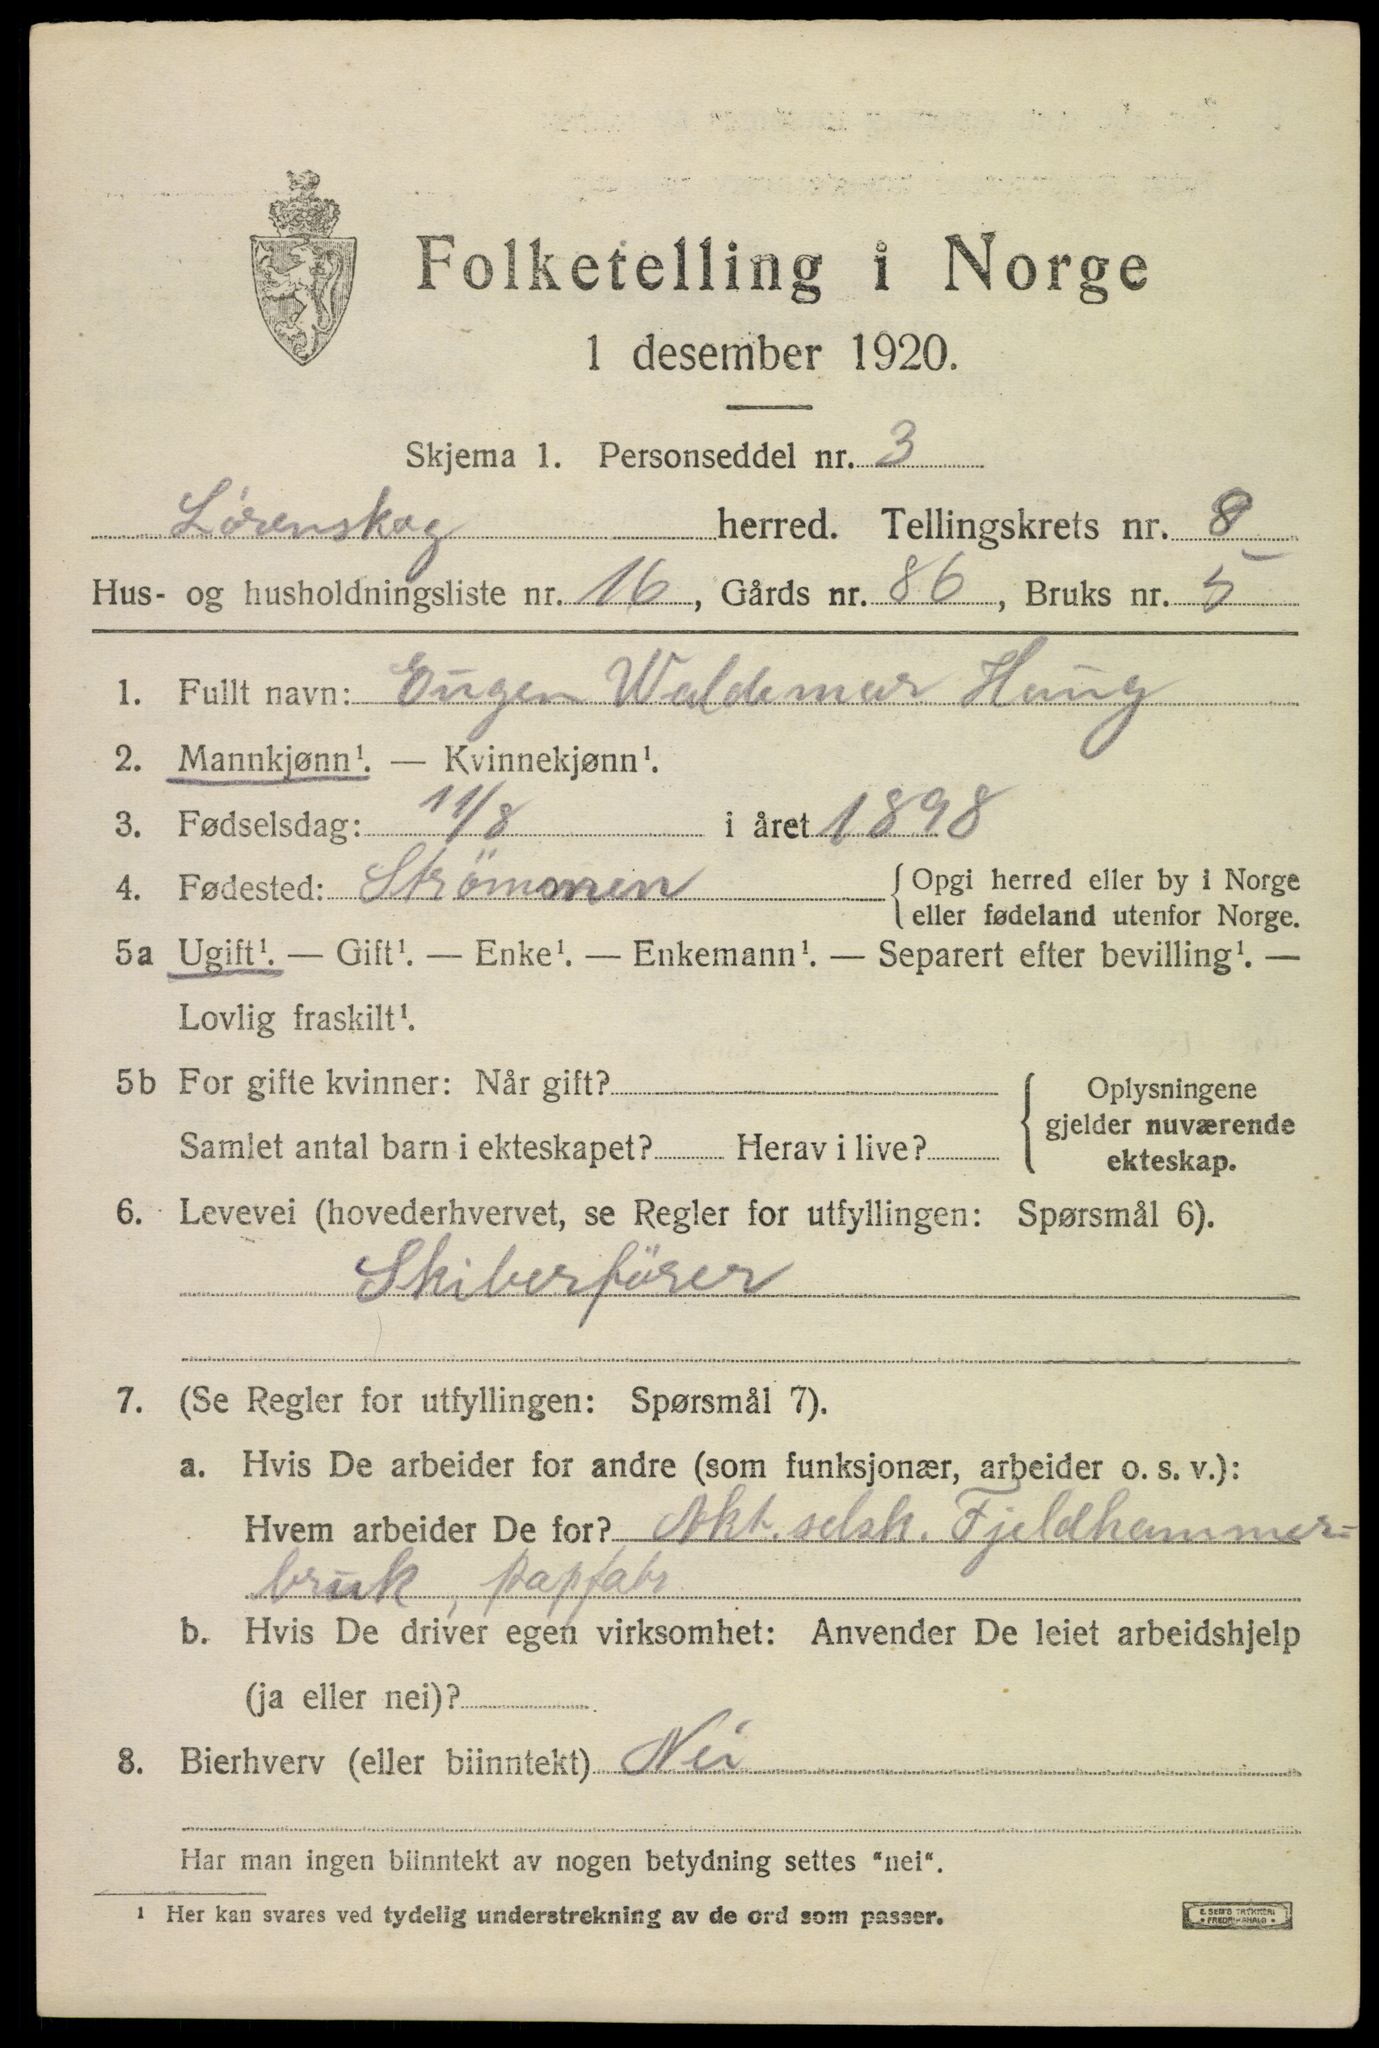 Folketelling i Norge
1 desember 1920.
Skjema 1. Personseddel nr. 3
Lørenskog herred. Tellingskrets nr. 8
Hus- og husholdningsliste nr. 16, Gårds nr. 86, Bruks nr. 5
1. Fullt navn: Eugen Waldemar Haug
2. Mannkjønn¹. — Kvinnekjønn¹.
3. Fødselsdag: 11/8 i året 1898
4. Fødested: Strömmen { Opgi herred eller by i Norge
eller fødeland utenfor Norge.
5a Ugift¹. — Gift¹. — Enke¹. — Enkemann¹. — Separert efter bevilling¹. —
Lovlig fraskilt¹.
5b For gifte kvinner: Når gift?
Samlet antal barn i ekteskapet? Herav i live?
{ Oplysningene
gjelder nuværende
ekteskap.
6. Levevei (hovederhvervet, se Regler for utfyllingen: Spørsmål 6).
Skiberförer
7. (Se Regler for utfyllingen: Spørsmål 7).
a. Hvis De arbeider for andre (som funksjonær, arbeider o. s. v.):
Hvem arbeider De for? Akt.selsk. Fjeldhammer-
bruk, papfabr
b. Hvis De driver egen virksomhet: Anvender De leiet arbeidshjelp
(ja eller nei)?
8. Bierhverv (eller biinntekt) Nei
Har man ingen biinntekt av nogen betydning settes "nei".
¹ Her kan svares ved tydelig understrekning av de ord som passer.
E. SEM'S TRYKKERI
• FREDRIKSHALD •